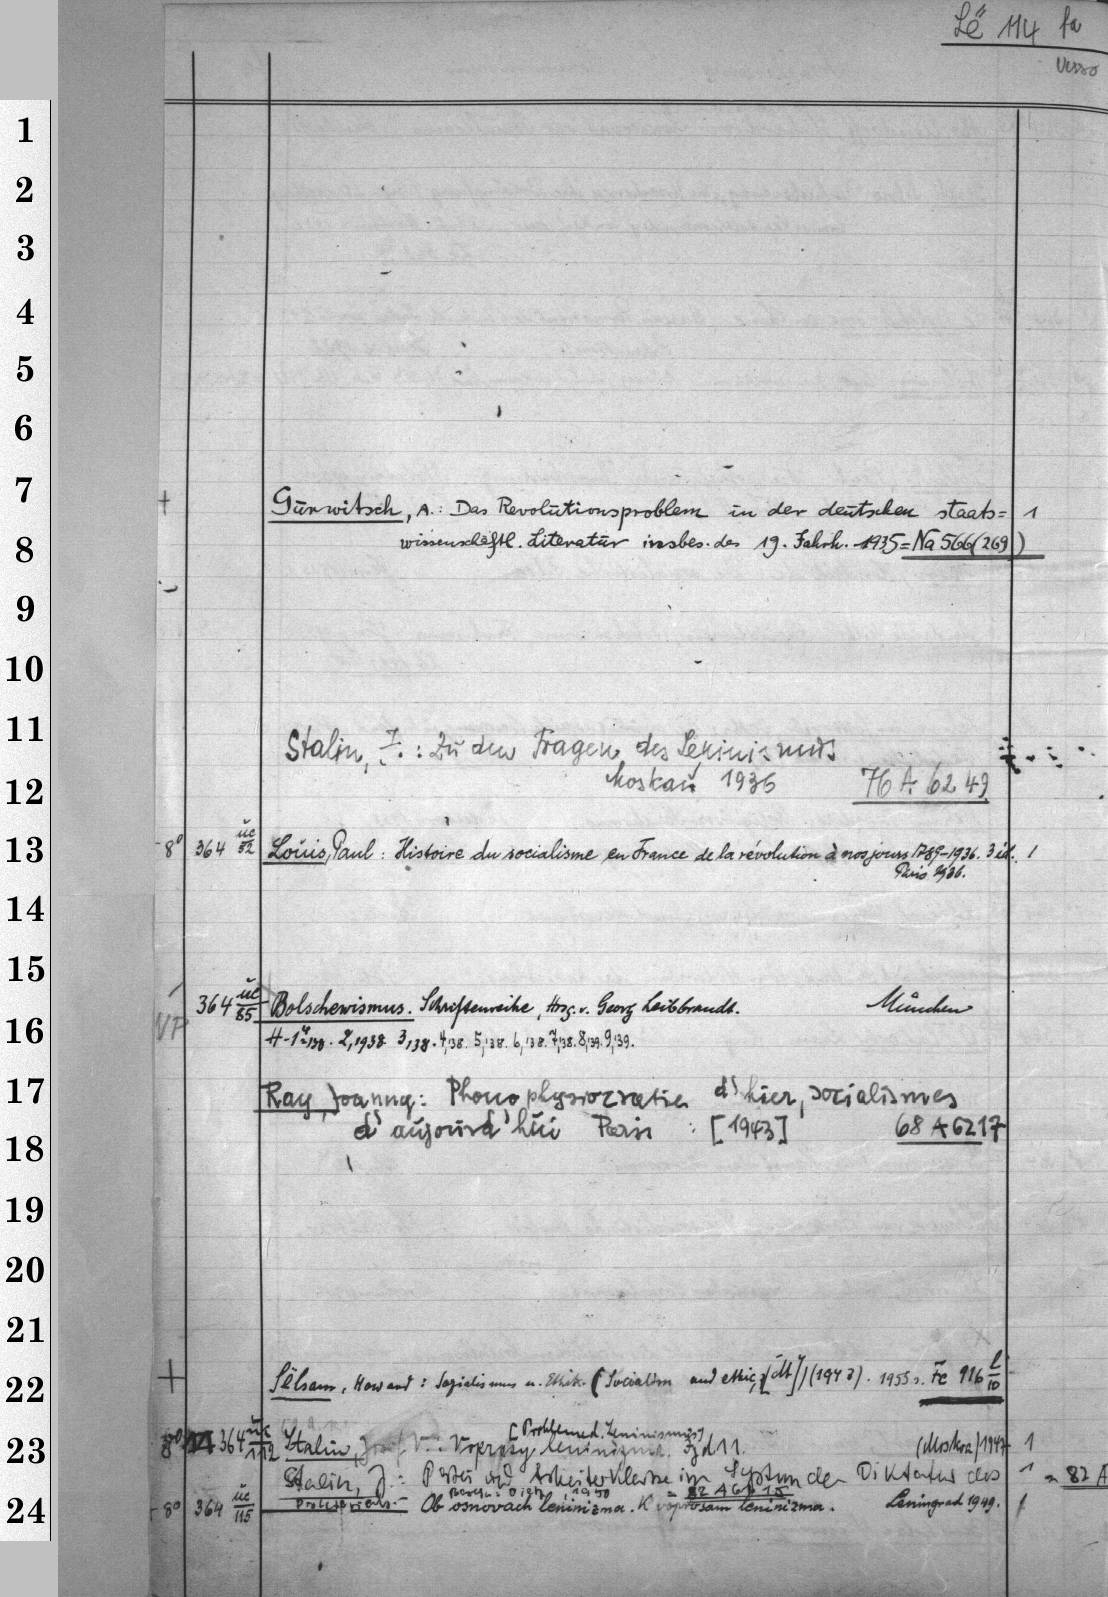 Lë 114 fa
Verso
1
2
3
4
5
6
7
+ Gurwitsch, A.: Das Revolutionsproblem in der deutschen staats= 1
8
wissenschaftl. Literatur insbes. des 19. Jahrh. 1935 = Na 566(269)
9
10
11
Stalin, I.: Zu den Fragen des Leninismus
12
Moskau 1936 76 A 6249
13
8° 364 üc/52 Louis, Paul: Histoire du socialisme en France de la révolution à nos jours 1789-1936. 3 éd. 1
Paris 1936.
14
15
364 üc/85 Bolschewismus. Schriftenreihe, Hrsg. v. Georg Leibbrandt. München
16
H. 1 2,1938. 3,138. 4,138. 5,138. 6,138. 7,138. 8,139. 9,139.
17
Ray, Joanny: Phono physiocratie d'hier, socialismes
d'aujourd'hui Paris : [1943] 68 A 6217
18
19
20
21
22
+ Selsam, Howard: Sozialismus u. Ethik. (Socialism and ethics, [dt.]) (1943). 1955. Fc 916 l/10
[Probleme d. Leninismus]
23
8° 364 üc/112 Stalin, Josif V.: Voprosy leninizma. Izd 11. (Moskva) 1947 1
Stalin, J.: Partei und Arbeiterklasse im System der Diktatur des 1 = 82 A
Proletariats. Berlin: Dietz, 1950 = 82 A 6913
24
8° 364 üc/115 Ob osnovach leninizma. K voprosam leninizma. Leningrad 1949. 1